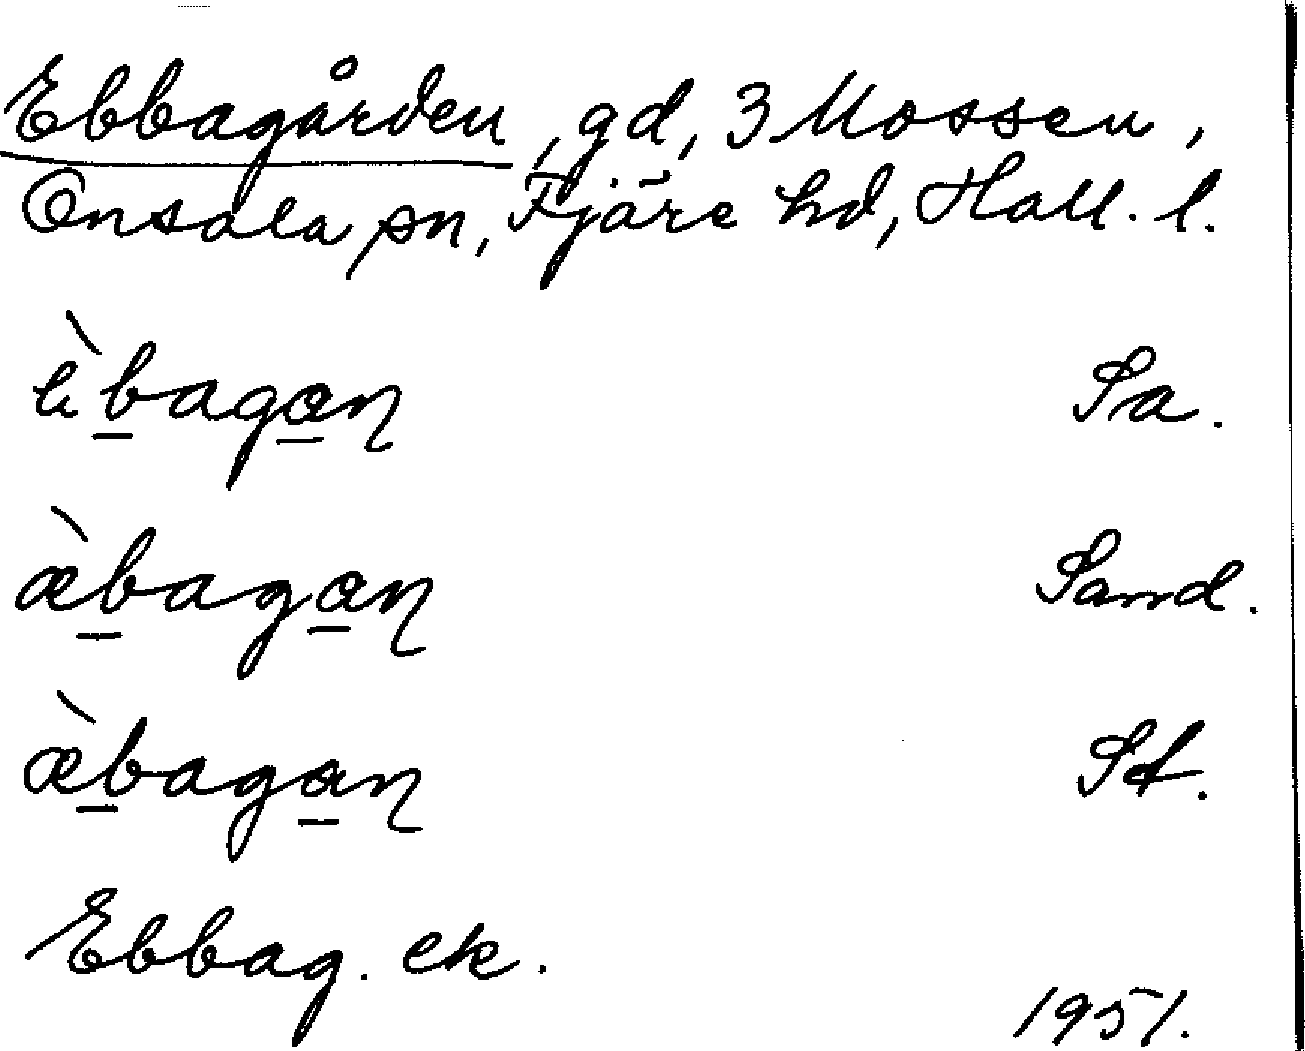 Ebbagården, gd, 3 Mossen,
Onsala sn, Fjäre hd, Hall. l.
èbagan Sa.
æ̀bagan Sand.
æ̀bagan St.
Ebbag. ek.
1951.